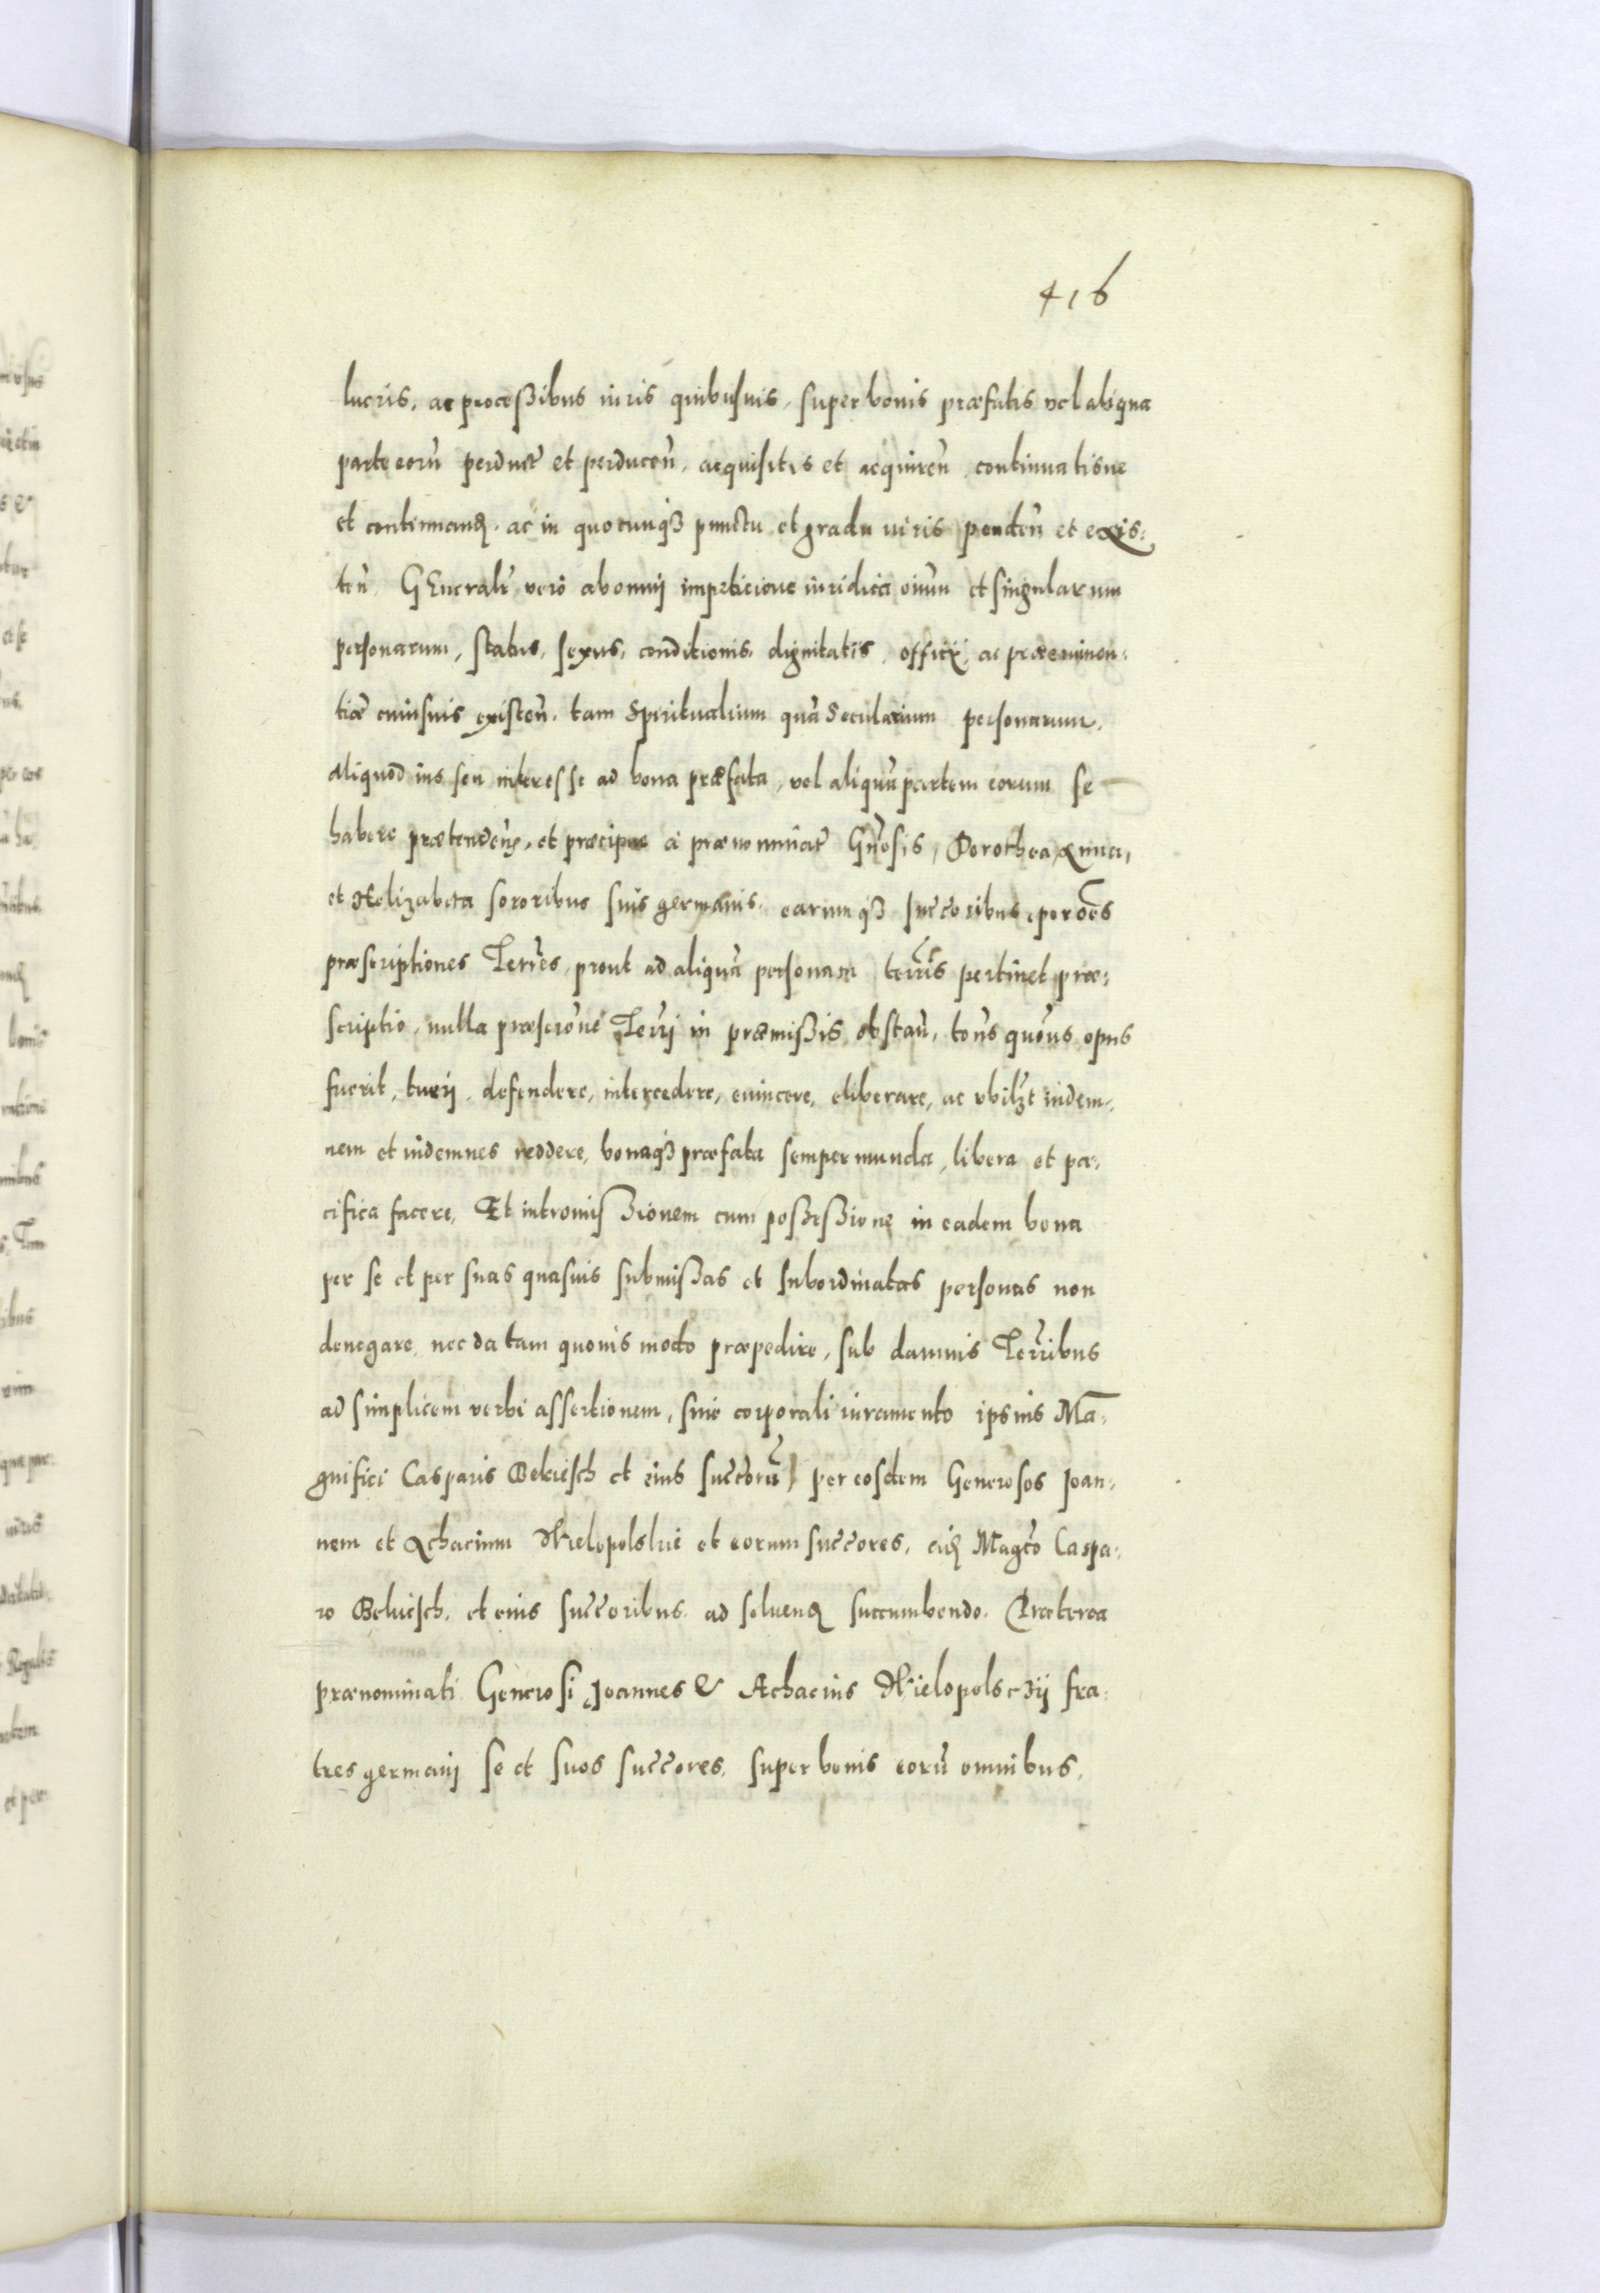 416
lucris, ac processibus iuris quibusuis, super bonis præfatis vel aliqua
parte eorū perduct̃ et perducen̄, acquisitis et acquiren̄ continuatisue
et continuand̃, ac in quocunq3 punctu et gradu iuris penden̄ et exis:
ten̄, GEneralr̃ vero ab omnj impeticione iuridica oĩum et singularum
personarum, status, sexus, conditionis, dignitatis, officij, ac præeminen:
tiæ cuiusuis existen̄, tam Spiritualium quā Secularium personarum,
Aliquod ius seu interesse ad bona præfata, vel aliquā partem eorum se
habere prætenden̄, et præcipue à prænominat̃ Gñosis, Dorothea, Anna,
et Helizabeta sororibus suis germanis, earumq3 succ̃oribus, per oēs
præscriptiones Terr̃es, prout ad aliquā personam terr̃is pertinet præ:
scriptio, nulla præscr̃one Terrj in præmissis obstan̄, tot̃ns quot̃ns opus
fuerit, tuerj, defendere, intercedere, euincere, eliberare, ac vbilt̃ indem:
nem et indemnes reddere, bonaq3 præfata semper munda, libera et pa:
cifica facere, Et intromissionem cum possessione in eadem bona
per se et per suas quasuis submissas et subordinatas personas non
denegare, nec datam quouis modo præpedire, sub damnis Terr̃ibus
ad simplicem verbi assertionem, sine corporali iuramento ipsius Ma:
gnifici Casparis Bekiesch et eius succ̃orū) per eosdem Generosos Joan:
nem et Achacium Wielopolskie et eorum succ̃ores, eid̃ Magc̃o Caspa:
ro Bekiesch, et eius succ̃oribus, ad soluend̃ succumbendo. Præterea
prænominati Generosi Joannes & Achacius Wielopolsczij fra:
tres germanj se et suos succ̃ores, super bonis eorū omnibus,